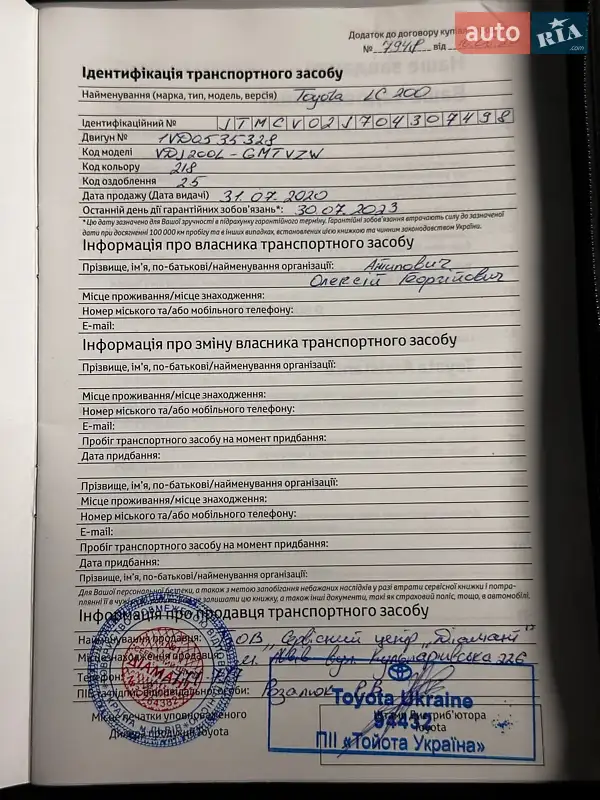 auto RIA .com
Додаток до договору купів
№ 794Р від
Ідентифікація транспортного засобу
Найменування (марка, тип, модель, версія) Toyota LC 200
Ідентифікаційний № JTMCV02J704307498
Двигун № 1VD0535328
Код моделі VDJ200L-GMTVZW
Код кольору 218
Код оздоблення 25
Дата продажу (Дата видачі) 31.07.2020
Останній день дії гарантійних зобов'язань*: 30.07.2023
* Цю дату зазначено для Вашої зручності в підрахунку гарантійного терміну. Гарантійні зобов'язання втрачають силу до зазначеної
дати при досягненні 100 000 км пробігу та в інших випадках, встановлених цією книжкою та чинним законодавством України.
Інформація про власника транспортного засобу
Прізвище, ім'я, по-батькові/найменування організації: Антипович
Олексій Георгійович
Місце проживання/місце знаходження:
Номер міського та/або мобільного телефону:
E-mail:
Інформація про зміну власника транспортного засобу
Прізвище, ім'я, по-батькові/найменування організації:
Місце проживання/місце знаходження:
Номер міського та/або мобільного телефону:
E-mail:
Пробіг транспортного засобу на момент придбання:
Дата придбання:
Прізвище, ім'я, по-батькові/найменування організації:
Місце проживання/місце знаходження:
Номер міського та/або мобільного телефону:
E-mail:
Пробіг транспортного засобу на момент придбання:
Дата придбання:
Прізвище, ім'я, по-батькові/найменування організації:
Для Вашої персональної безпеки, а також з метою запобігання небажаних наслідків у разі втрати сервісної книжки і потра-
плянні її в чужі залишати цю книжку, а також інші документи, такі як страховий поліс, тощо, в автомобілі.
Інформація про продавця транспортного засобу
Найменування продавця: ТОВ „Сервісний центр „Діамант"
Місце знаходження продавця: м. Львів вул. Кульпарківська 226
Телефон:
ПІБ та підпис відповідальної особи:
Toyota Ukraine
94432
ПІІ «Тойота Україна»
Місце печатки уповноваженого
Дилера продукції Toyota
Дистриб'ютора
Toyota